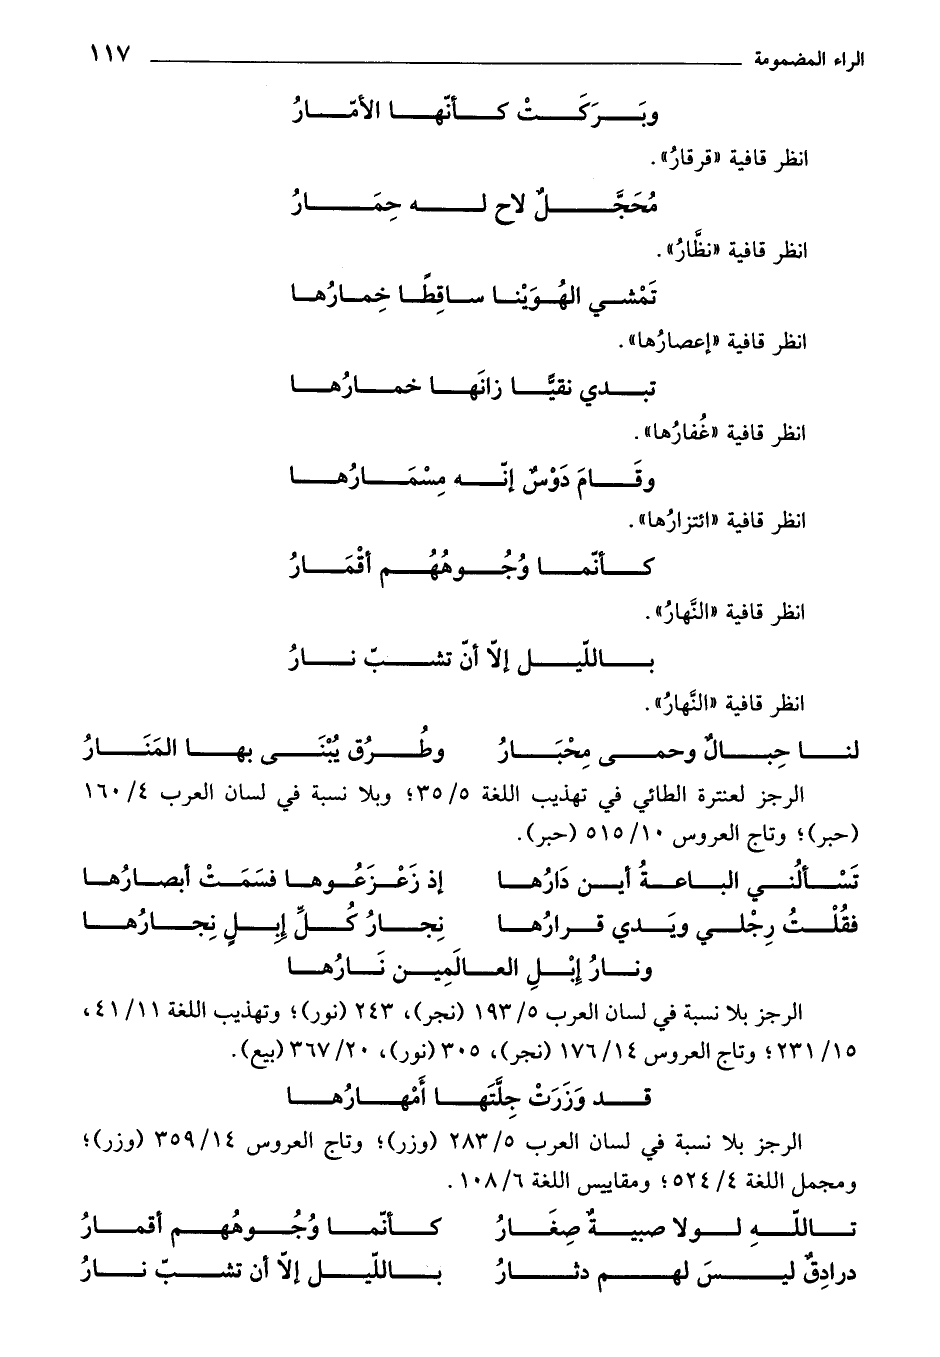 الراء المضمومة ١١٧
وبَرَكَتْ كأنّها الأمّارُ
انظر قافية «قرقارُ».
مُحَجَّلٌ لاح له حِمَارُ
انظر قافية «نظَّارُ».
تَمْشي الهُوَيْنا ساقِطًا خِمارُها
انظر قافية «إعصارُها».
تبدي نقيًّا زانَها خمارُها
انظر قافية «غُفارُها».
وقَامَ دَوْسٌ إنّه مِسْمَارُها
انظر قافية «ائتزارُها».
كأنّما وُجُوهُهُم أقْمَارُ
انظر قافية «النَّهارُ».
باللّيل إلاّ أنّ تشبّ نارُ
انظر قافية «النَّهارُ».
لنا حِبالٌ وحمى مِحْبَارُ وطُرُق يُبْنَى بها المَنَارُ
الرجز لعنترة الطائي في تهذيب اللغة ٣٥/٥؛ وبلا نسبة في لسان العرب ١٦٠/٤
(حبر)؛ وتاج العروس ٥١٥/١٠ (حبر).
تَسْألُني الباعةُ أين دَارُها إذ زَعْزَعُوها فسَمَتْ أبصارُها
فقُلْتُ رِجْلي ويَدي قرارُها نِجارُ كُلِّ إِبِلٍ نِجارُها
ونارُ إبْلِ العالَمِين نَارُها
الرجز بلا نسبة في لسان العرب ١٩٣/٥ (نجر)، ٢٤٣ (نور)؛ وتهذيب اللغة ٤١/١١،
٢٣١/١٥؛ وتاج العروس ١٧٦/١٤ (نجر)، ٣٠٥ (نور)، ٣٦٧/٢٠ (بيع).
قد وَزَرَتْ جِلَّتَها أَمْهارُها
الرجز بلا نسبة في لسان العرب ٢٨٣/٥ (وزر)؛ وتاج العروس ٣٥٩/١٤ (وزر)؛
ومجمل اللغة ٥٢٤/٤؛ ومقاييس اللغة ١٠٨/٦.
تاللّهِ لولا صبيةٌ صِغَارُ كأنّما وُجُوهُهم أقمارُ
درادِقٌ ليسَ لهم دثارُ باللّيل إلاّ أن تشبّ نارُ